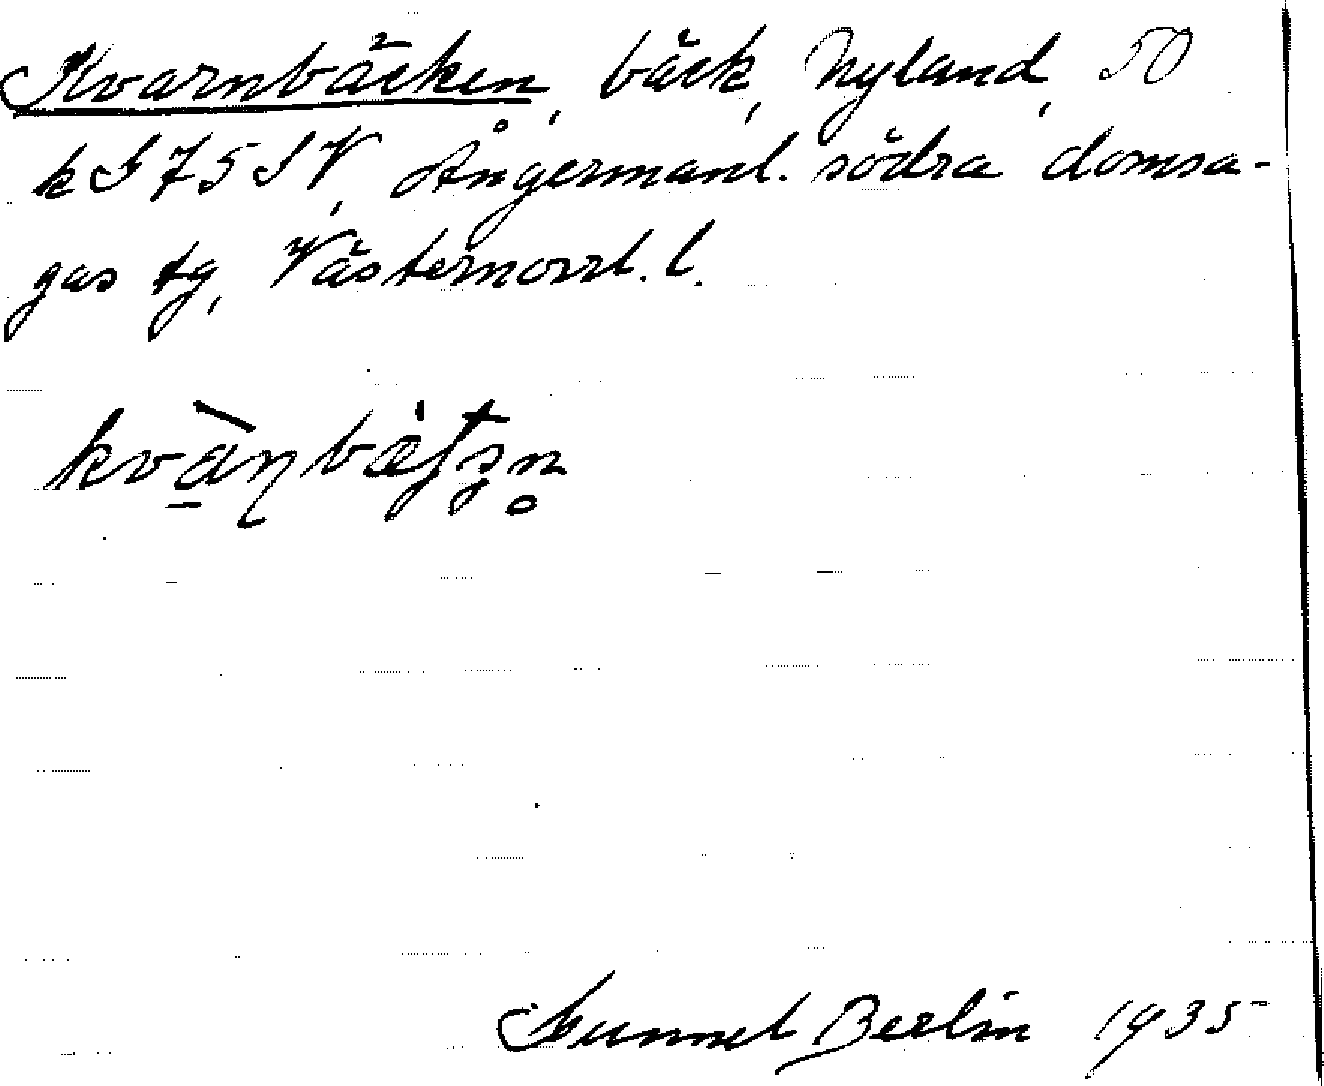 Kvarnbäcken, bäck, Nyland, 50
k S 75 S V, Ångermanl. södra domsa-
gas tg, Västernorrl. l.
Gunnel Berlin 1935